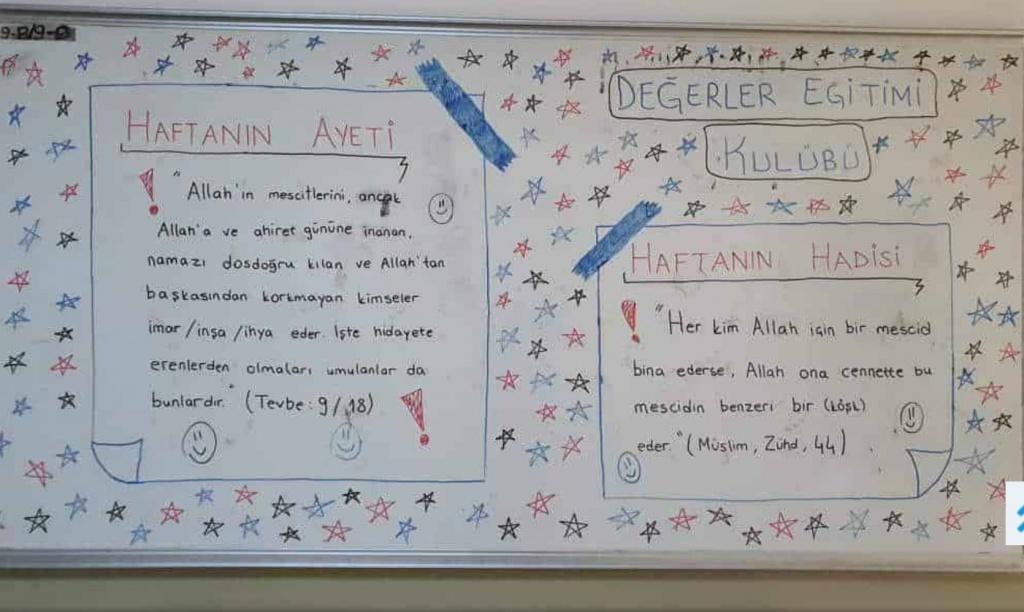 HAFTANIN AYETİ
"Allah'ın mescitlerini, ancak
Allah'a ve ahiret gününe inanan,
namazı dosdoğru kılan ve Allah'tan
başkasından korkmayan kimseler
imar/inşa/ihya eder. İşte hidayete
erenlerden olmaları umulanlar da
bunlardır." (Tevbe: 9/18)
DEĞERLER EGİTİMİ
KULÜBÜ
HAFTANIN HADİSİ
"Her kim Allah için bir mescid
bina ederse, Allah ona cennette bu
mescidin benzeri bir (köşk)
eder." (Müslim, Zühd, 44)